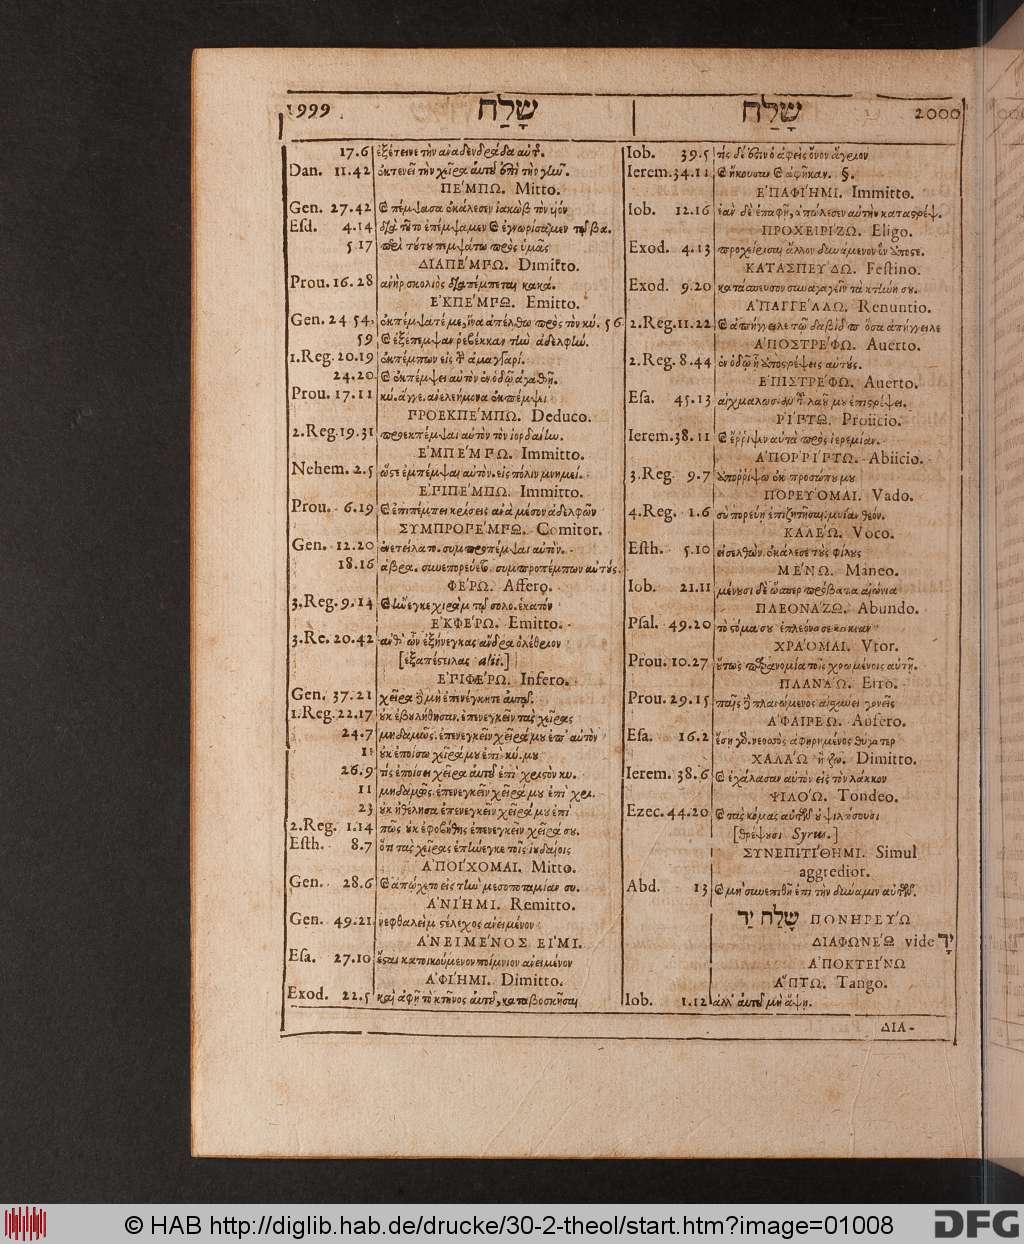 1999 שָׁלַח
17.6 ἐξέτεινε τὴν ἀναδενδράδα αὐτῆς.
Dan. 11.42 ἐκτενεῖ τὴν χεῖρα αὐτοῦ ἐπὶ τὴν γῆν.
ΠΕ΄ΜΠΩ. Mitto.
Gen. 27.42 καὶ πέμψασα ἐκάλεσεν ἰακὼβ τὸν υἱόν
Esd. 4.14 διὰ τοῦτο ἐπέμψαμεν καὶ ἐγνωρίσαμεν τῷ βα.
5.17 περὶ τούτου πεμψάτω πρὸς ὑμᾶς
ΔΙΑΠΕ΄ΜΠΩ. Dimitto.
Prou. 16.28 ἀνὴρ σκολιὸς διαπέμπεται κακά.
Ε᾿ΚΠΕ΄ΜΠΩ. Emitto.
Gen. 24 54, ἐκπέμψατέ με, ἵνα ἀπέλθω πρὸς τὸν κύ. 56
59 καὶ ἐξέπεμψαν ρεβέκκαν τὴν ἀδελφήν.
1.Reg. 20.19 ἐκπέμπων εἰς τ ἀματταρί.
24.20 καὶ ἐκπέμψει αὐτὸν ἐν ὁδῷ ἀγαθῇ.
Prou. 17.11 κύ. ἄγγε. ἀνελεήμονα ἐκπέμψει
ΠΡΟΕΚΠΕ΄ΜΠΩ. Deduco.
2.Reg. 19.31 προεκπέμψαι αὐτὸν τὸν ἰορδάνην.
Ε᾿ΜΠΕ΄ΜΠΩ. Immitto.
Nehem. 2.5 ὥστε ἐμπέμψαι αὐτὸν. εἰς πόλιν μνημεί.
Ε᾿ΠΙΠΕ΄ΜΠΩ. Immitto.
Prou. 6.19 καὶ ἐπιπέμπει κρίσεις ἀνὰ μέσον ἀδελφῶν
ΣΥΜΠΡΟΠΕ΄ΜΠΩ. Comitor.
Gen. 12.20 ἐνετείλατο. συμπροπέμψαι αὐτὸν.
18.16 ἀβρα. συνεπορεύετο. συμπροπέμπων αὐτούς.
ΦΕ΄ΡΩ. Affero.
3.Reg. 9.14 καὶ ἤνεγκε χιρὰμ τῷ σολο. ἑκατόν
Ε᾿ΚΦΕ΄ΡΩ. Emitto.
3.Re. 20.42 ἀνθ᾽ ὧν ἐξήνεγκας ἄνδρα ὀλέθριον
[ἐξαπέστειλας alii.]
Ε᾿ΠΙΦΕ΄ΡΩ. Infero.
Gen. 37.21 χεῖρα δὲ μὴ ἐπενέγκητε αὐτῷ.
1.Reg. 22.17 οὐκ ἐβουλήθησαν. ἐπενεγκεῖν τὰς χεῖρας
24.7 μηδαμῶς. ἐπενεγκεῖν χεῖρά μου ἐπ᾽ αὐτὸν
11 οὐκ ἐποίσω χεῖρά μου ἐπὶ κύ. μου
26.9 τίς ἐποίσει χεῖρα αὐτοῦ ἐπὶ χριστὸν κυ.
11 μηδαμῶς. ἐπενεγκεῖν χεῖρά μου ἐπὶ χρι.
23 οὐκ ἠθέλησα ἐπενεγκεῖν χεῖρά μου ἐπί
2.Reg. 1.14 πῶς οὐκ ἐφοβήθης ἐπενεγκεῖν χεῖρά σου.
Esth. 8.7 ὅτι τὰς χεῖρας ἐπήνεγκε τοῖς ἰουδαίοις
Α᾿ΠΟΙ΄ΧΟΜΑΙ. Mitto.
Gen. 28.6 καὶ ἀπῴχετο εἰς τὴν μεσοποταμίαν συ.
Α᾿ΝΙ΄ΗΜΙ. Remitto.
Gen. 49.21 νεφθαλεὶμ στέλεχος ἀνειμένον
Α᾿ΝΕΙΜΕ΄ΝΟΣ ΕΙ᾿ΜΙ.
Esa. 27.10 ἔσται κατοικούμενον ποίμνιον ἀνειμένον
Α᾿ΦΙ΄ΗΜΙ. Dimitto.
Exod. 22.5 καὶ ἀφῇ τὸ κτῆνος αὐτοῦ, καταβοσκῆσαι
שָׁלַח 2000
Iob. 39.5 τίς δέ ἐστιν ὁ ἀφεὶς ὄνον ἄγριον
Ierem. 34.11 καὶ ἤκουσαν καὶ ἀφῆκαν. §.
Ε᾿ΠΑΦΙ΄ΗΜΙ. Immitto.
Iob. 12.16 ἐὰν δὲ ἐπαφῇ, ἀπώλεσεν αὐτὴν καταστρέψ.
ΠΡΟΧΕΙΡΙ΄ΖΩ. Eligo.
Exod. 4.13 προχείρισαι ἄλλον δυνάμενον ὃν ἀποστε.
ΚΑΤΑΣΠΕΥ΄ΔΩ. Festino.
Exod. 9.20 κατάσπευσον συναγαγεῖν τὰ κτήνη σου.
Α᾿ΠΑΓΓΕ΄ΛΛΩ. Renuntio.
2.Reg. 11.22 καὶ ἀπήγγειλε τῷ δαβὶδ πάντα ὅσα ἀπήγγειλε
Α᾿ΠΟΣΤΡΕ΄ΦΩ. Auerto.
2.Reg. 8.44 ἐν ὁδῷ ᾗ ἀποστρέψεις αὐτούς.
Ε᾿ΠΙΣΤΡΕ΄ΦΩ. Auerto.
Esa. 45.13 αἰχμαλωσίαν τοῦ λαοῦ μου ἐπιστρέψει.
ΡΙ΄ΠΤΩ. Proiicio.
Ierem. 38.11 καὶ ἔῤῥιψεν αὐτὰ πρὸς ἱερεμίαν.
Α᾿ΠΟΡΡΙ΄ΠΤΩ. Abiicio.
3.Reg. 9.7 ἀποῤῥίψω ἐκ προσώπου μου
ΠΟΡΕΥ΄ΟΜΑΙ. Vado.
4.Reg. 1.6 συ πορεύῃ ἐπιζητῆσαι. μυῖαν θεόν.
ΚΑΛΕ΄Ω. Voco.
Esth. 5.10 εἰσελθὼν. ἐκάλεσε τοὺς φίλους
ΜΕ΄ΝΩ. Maneo.
Iob. 21.11 μένουσι δὲ ὥσπερ πρόβατα αἰώνια
ΠΛΕΟΝΑ΄ΖΩ. Abundo.
Psal. 49.20 τὸ στόμα σου ἐπλεόνασε κακίαν
ΧΡΑ΄ΟΜΑΙ. Vtor.
Prou. 10.27 οὕτως παρανομία τοῖς χρωμένοις αὐτῇ.
ΠΛΑΝΑ΄Ω. Erro.
Prou. 29.15 παῖς δὲ πλανώμενος αἰσχύνει γονεῖς
Α᾿ΦΑΙΡΕ΄Ω. Aufero.
Esa. 16.2 ἔσῃ γὰρ. νεοσσὸς ἀφηρημένος θύγατερ
ΧΑΛΑ΄Ω ἢ ζω. Dimitto.
Ierem. 38.6 καὶ ἐχάλασαν αὐτὸν εἰς τὸν λάκκον
ΨΙΛΟ΄Ω. Tondeo.
Ezec. 44.20 καὶ τὰς κόμας αὐτῶν οὐ ψιλώσουσι
[θρέψουσι Syrus.]
ΣΥΝΕΠΙΤΙ΄ΘΗΜΙ. Simul
aggredior.
Abd. 13 καὶ μὴ συνεπιθῇ ἐπὶ τὴν δύναμιν αὐτῶν.
שָׁלַח יַד ΠΟΝΗΡΕΥ΄Ω
ΔΙΑΦΩΝΕ΄Ω vide יָד
Α᾿ΠΟΚΤΕΙ΄ΝΩ
Α῞ΠΤΩ. Tango.
Iob. 1.12 ἀλλ᾽ αὐτοῦ μὴ ἅψῃ.
ΔΙΑ-
© HAB http://diglib.hab.de/drucke/30-2-theol/start.htm?image=01008
DFG